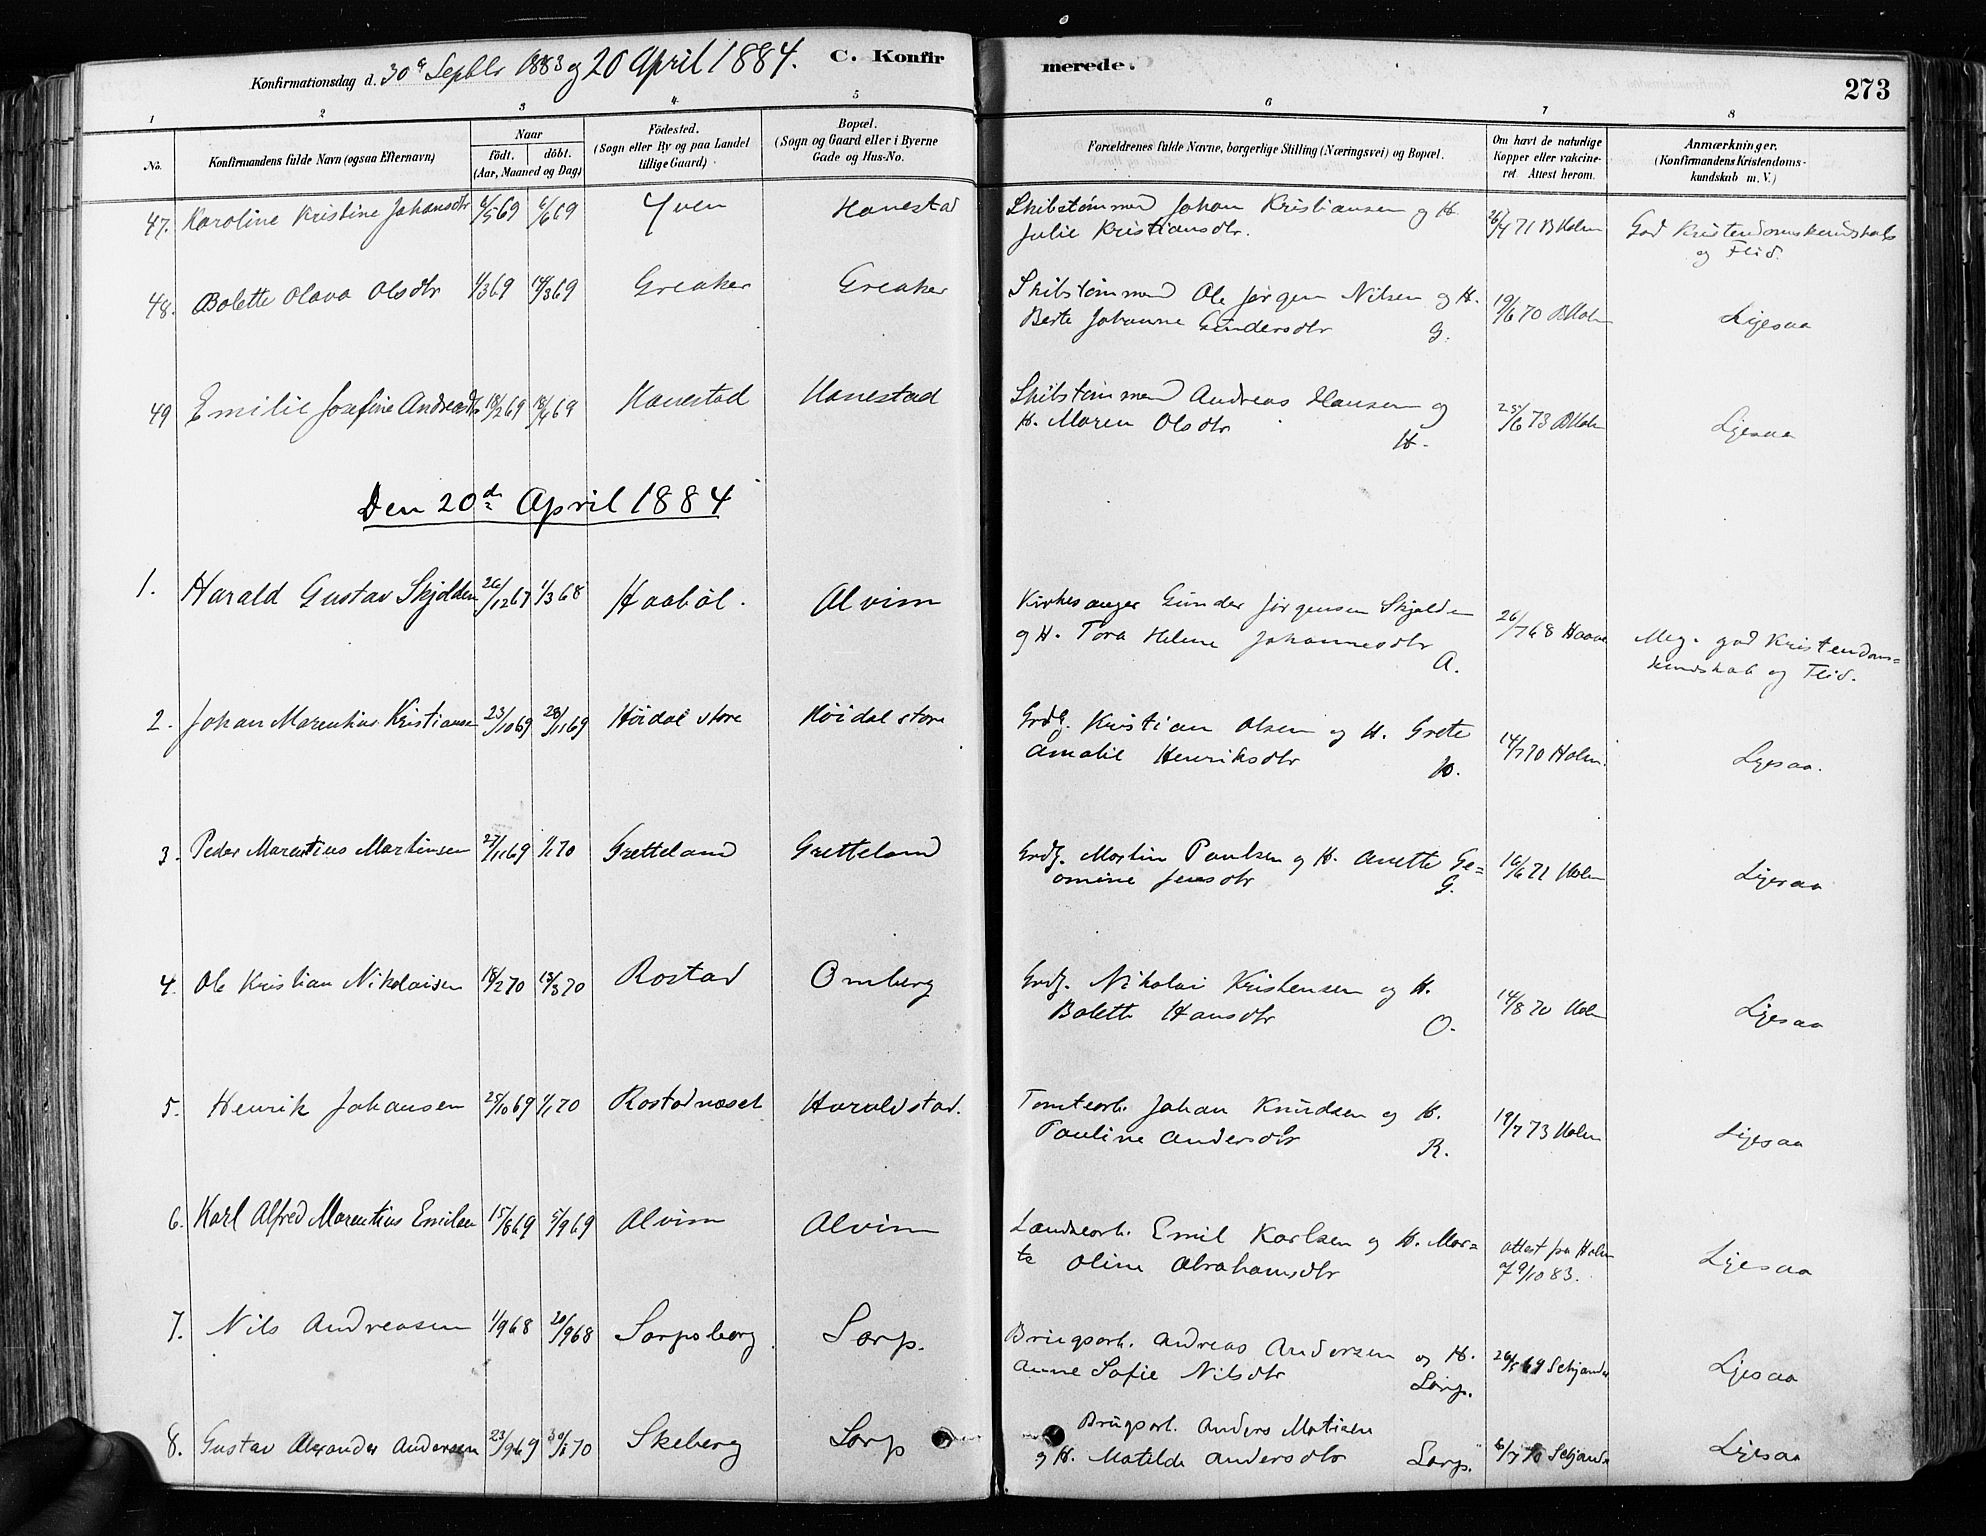 Konfirmationsdag d. 30d Septbr 1883 og 20 April 1884. C. Konfirmerede. 273
1 2 3 4 5 6 7 8
No. Konfirmandens fulde Navn (ogsaa Efternavn) Naar födt. döbt. (Aar, Maaned og Dag) Födested. (Sogn eller By og paa Landet tillige Gaard) Bopæl. (Sogn og Gaard eller i Byerne Gade og Hus-No. Forældrenes fulde Navne, borgerlige Stilling (Næringsvei) og Bopæl. Om havt de naturlige Kopper eller vakcineret Attest herom. Anmærkninger. (Konfirmandens Kristendomskundskab m. V.)
47. Karoline Kristine Johansdtr 6/5 69 6/6 69 Yven Hanestad Skibstømmermd Johan Kristiansen og H. 26/4 71 B Holm God Kristendomskundskab
Julie Kristiansdtr. og Flid.
48. Bolette Olava Olsdtr 1/3 69 14/3 69 Greaker Greaker Skibstømmermd Ole Jørgen Nilsen og H. 19/6 70 B Holm Ligesaa
Berte Johanne Gundersdtr G.
49 Emilie Josefine Andreasdtr 18/2 69 18/4 69 Hanestad Hanestad Skibstømmermd Andreas Hansen og 25/6 73 B Holm Ligesaa
H. Maren Olsdtr H.
Den 20de April 1884
1. Harald Gustav Skjolden 26/12 67 1/3 68 Haabøl. Alvim Kirkesanger Gunder Jørgensen Skjolden 26/7 68 Meg. god Kristendoms=
og H. Tora Helene Johannesdtr A. kundskab og Flid.
2. Johan Marentius Kristiansen 23/10 69 28/11 69 Høidal store Høidal store Grdg. Kristian Olsen og H. Grete 14/7 70 Holm. Ligesaa.
Amalie Henriksdtr H.
3. Peder Marentius Martinsen 27/11 69 1/1 70 Gretteland Gretteland Grdg. Martin Paulsen og H. Anette Ge= 16/6 71 Holm Ligesaa
omine Jensdtr G.
4. Ole Kristian Nikolaisen 18/2 70 13/3 70 Rostad Omberg Grdg. Nikolai Kristensen og H. 14/8 70 Holm Ligesaa
Bolette Hansdtr O.
5. Henrik Johansen 25/10 69 1/1 70 Rostadnæset Haraldstad. Tomtearb. Johan Knudsen og H. 19/7 73 Holm Ligesaa
Pauline Andersdtr R.
6. Karl Alfred Marentius Emilsen 15/8 69 5/9 69 Alvim Alvim Landsearb. Emil Karlsen og H. Mar= attest fra Holm Ligesaa
te Oline Abrahamsdtr af 9/10 83.
7. Nils Andreasen 1/9 68 20/9 68 Sarpsborg Sarp. Brugsarb. Andreas Andersen og H. 26/5 69 Ligesaa
Anne Sofie Nilsdtr Sarp.
8. Gustav Alexander Andersen 23/9 69 30/1 70 Skeberg Sarp Brugsarb. Anders Matisen
og H. Matilde Andersdtr Sarp. 6/7 70 Ligesaa